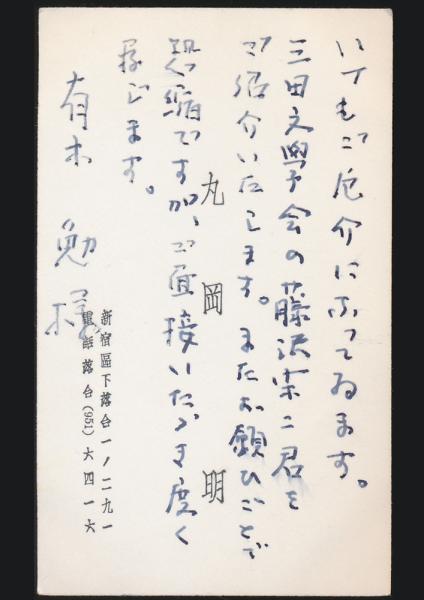 いつもご厄介になってゐます。
三田文學会の藤沢二君を
ご紹介いたします。またお願ひごとで
恐縮ですが、ご面接いただき度く
存じます。
有木 勉様
丸岡明
新宿區下落合一ノ二九一
電話落合(951)六四一六